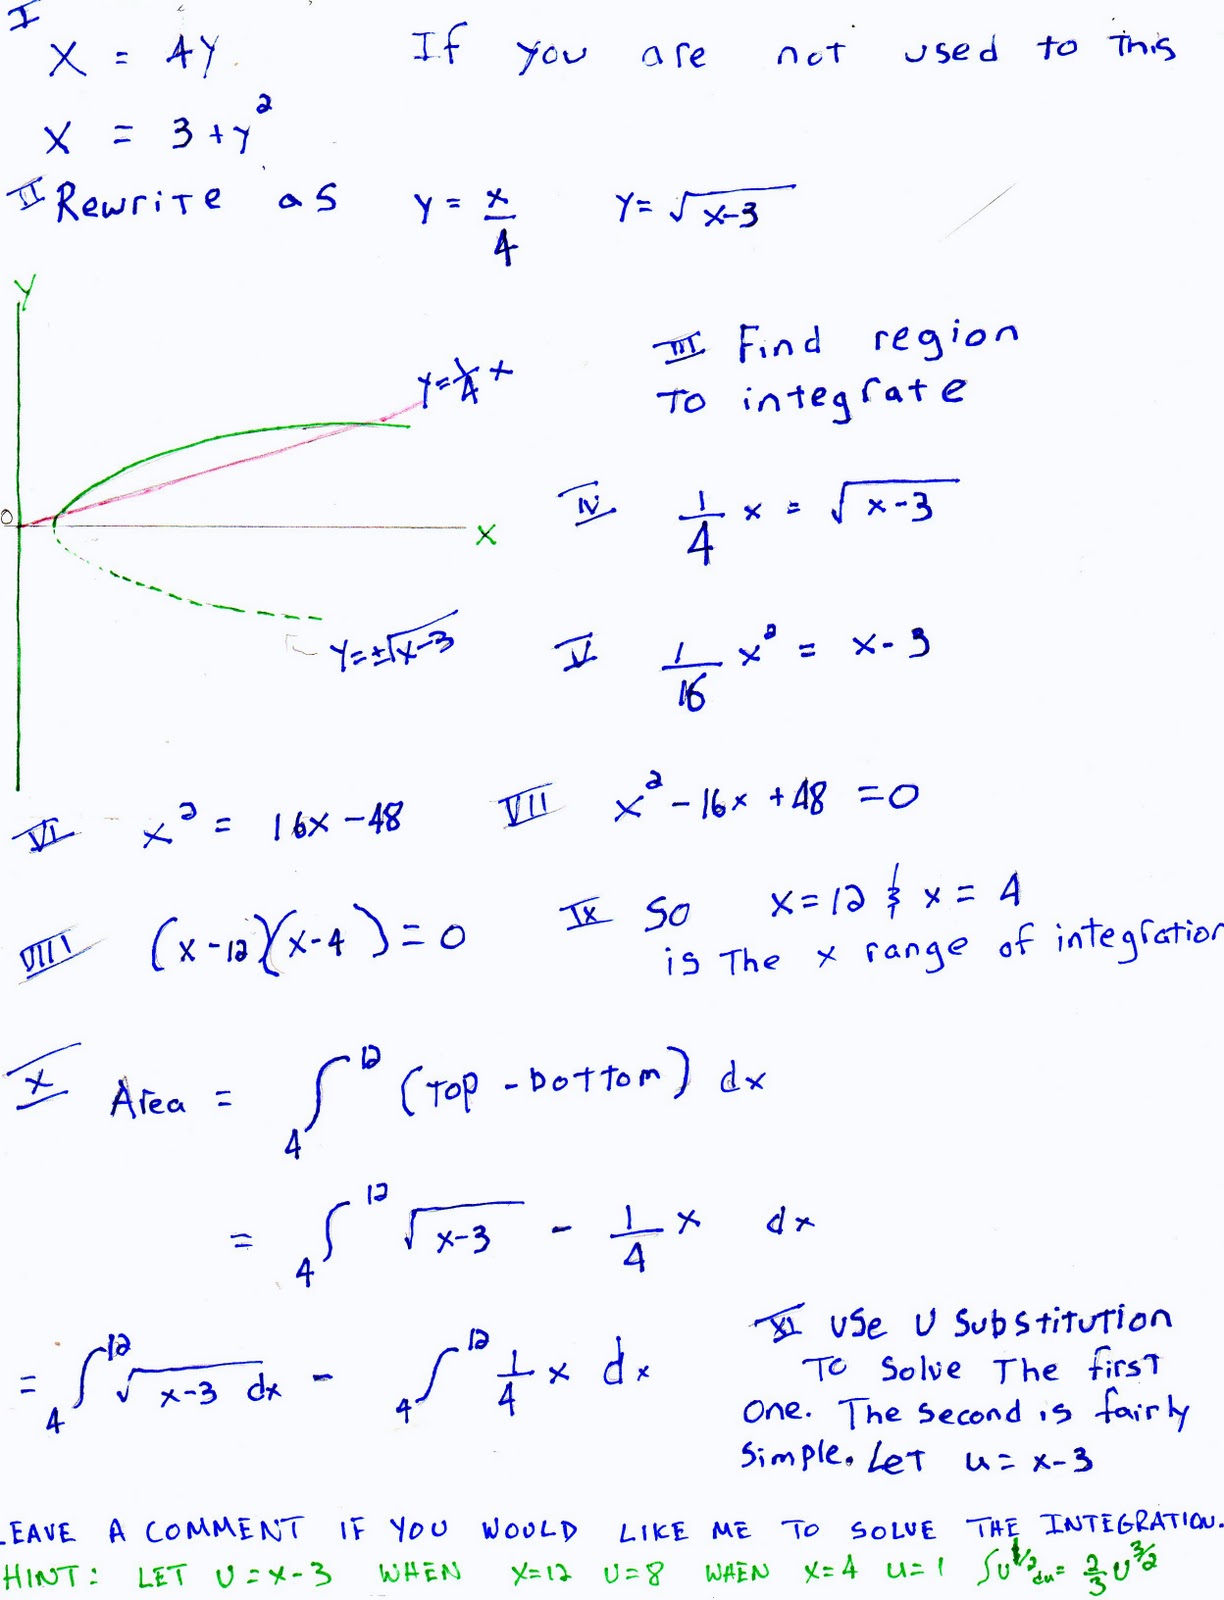 I
X = 4Y If you are not used to this
X = 3 + y²
II Rewrite as y = x/4 y = √(x-3)
Y
III Find region
To integrate
y = 1/4 x
O
X
IV 1/4 x = √(x-3)
y = ±√(x-3)
V 1/16 x² = x - 3
VI x² = 16x - 48 VII x² - 16x + 48 = 0
VIII (x-12)(x-4) = 0 IX So x = 12 & x = 4
is The x range of integration
X Area = ∫₄¹² (Top - bottom) dx
= ∫₄¹² √(x-3) - 1/4 x dx
= ∫₄¹² √(x-3) dx - ∫₄¹² 1/4 x dx
XI Use U Substitution
To Solve The first
One. The second is fairly
simple. Let u = x-3
LEAVE A COMMENT IF YOU WOULD LIKE ME TO SOLVE THE INTEGRATION.
HINT: LET U = x-3 WHEN X=12 U=8 WHEN X=4 U=1 ∫U^1/2 du = 2/3 U^3/2